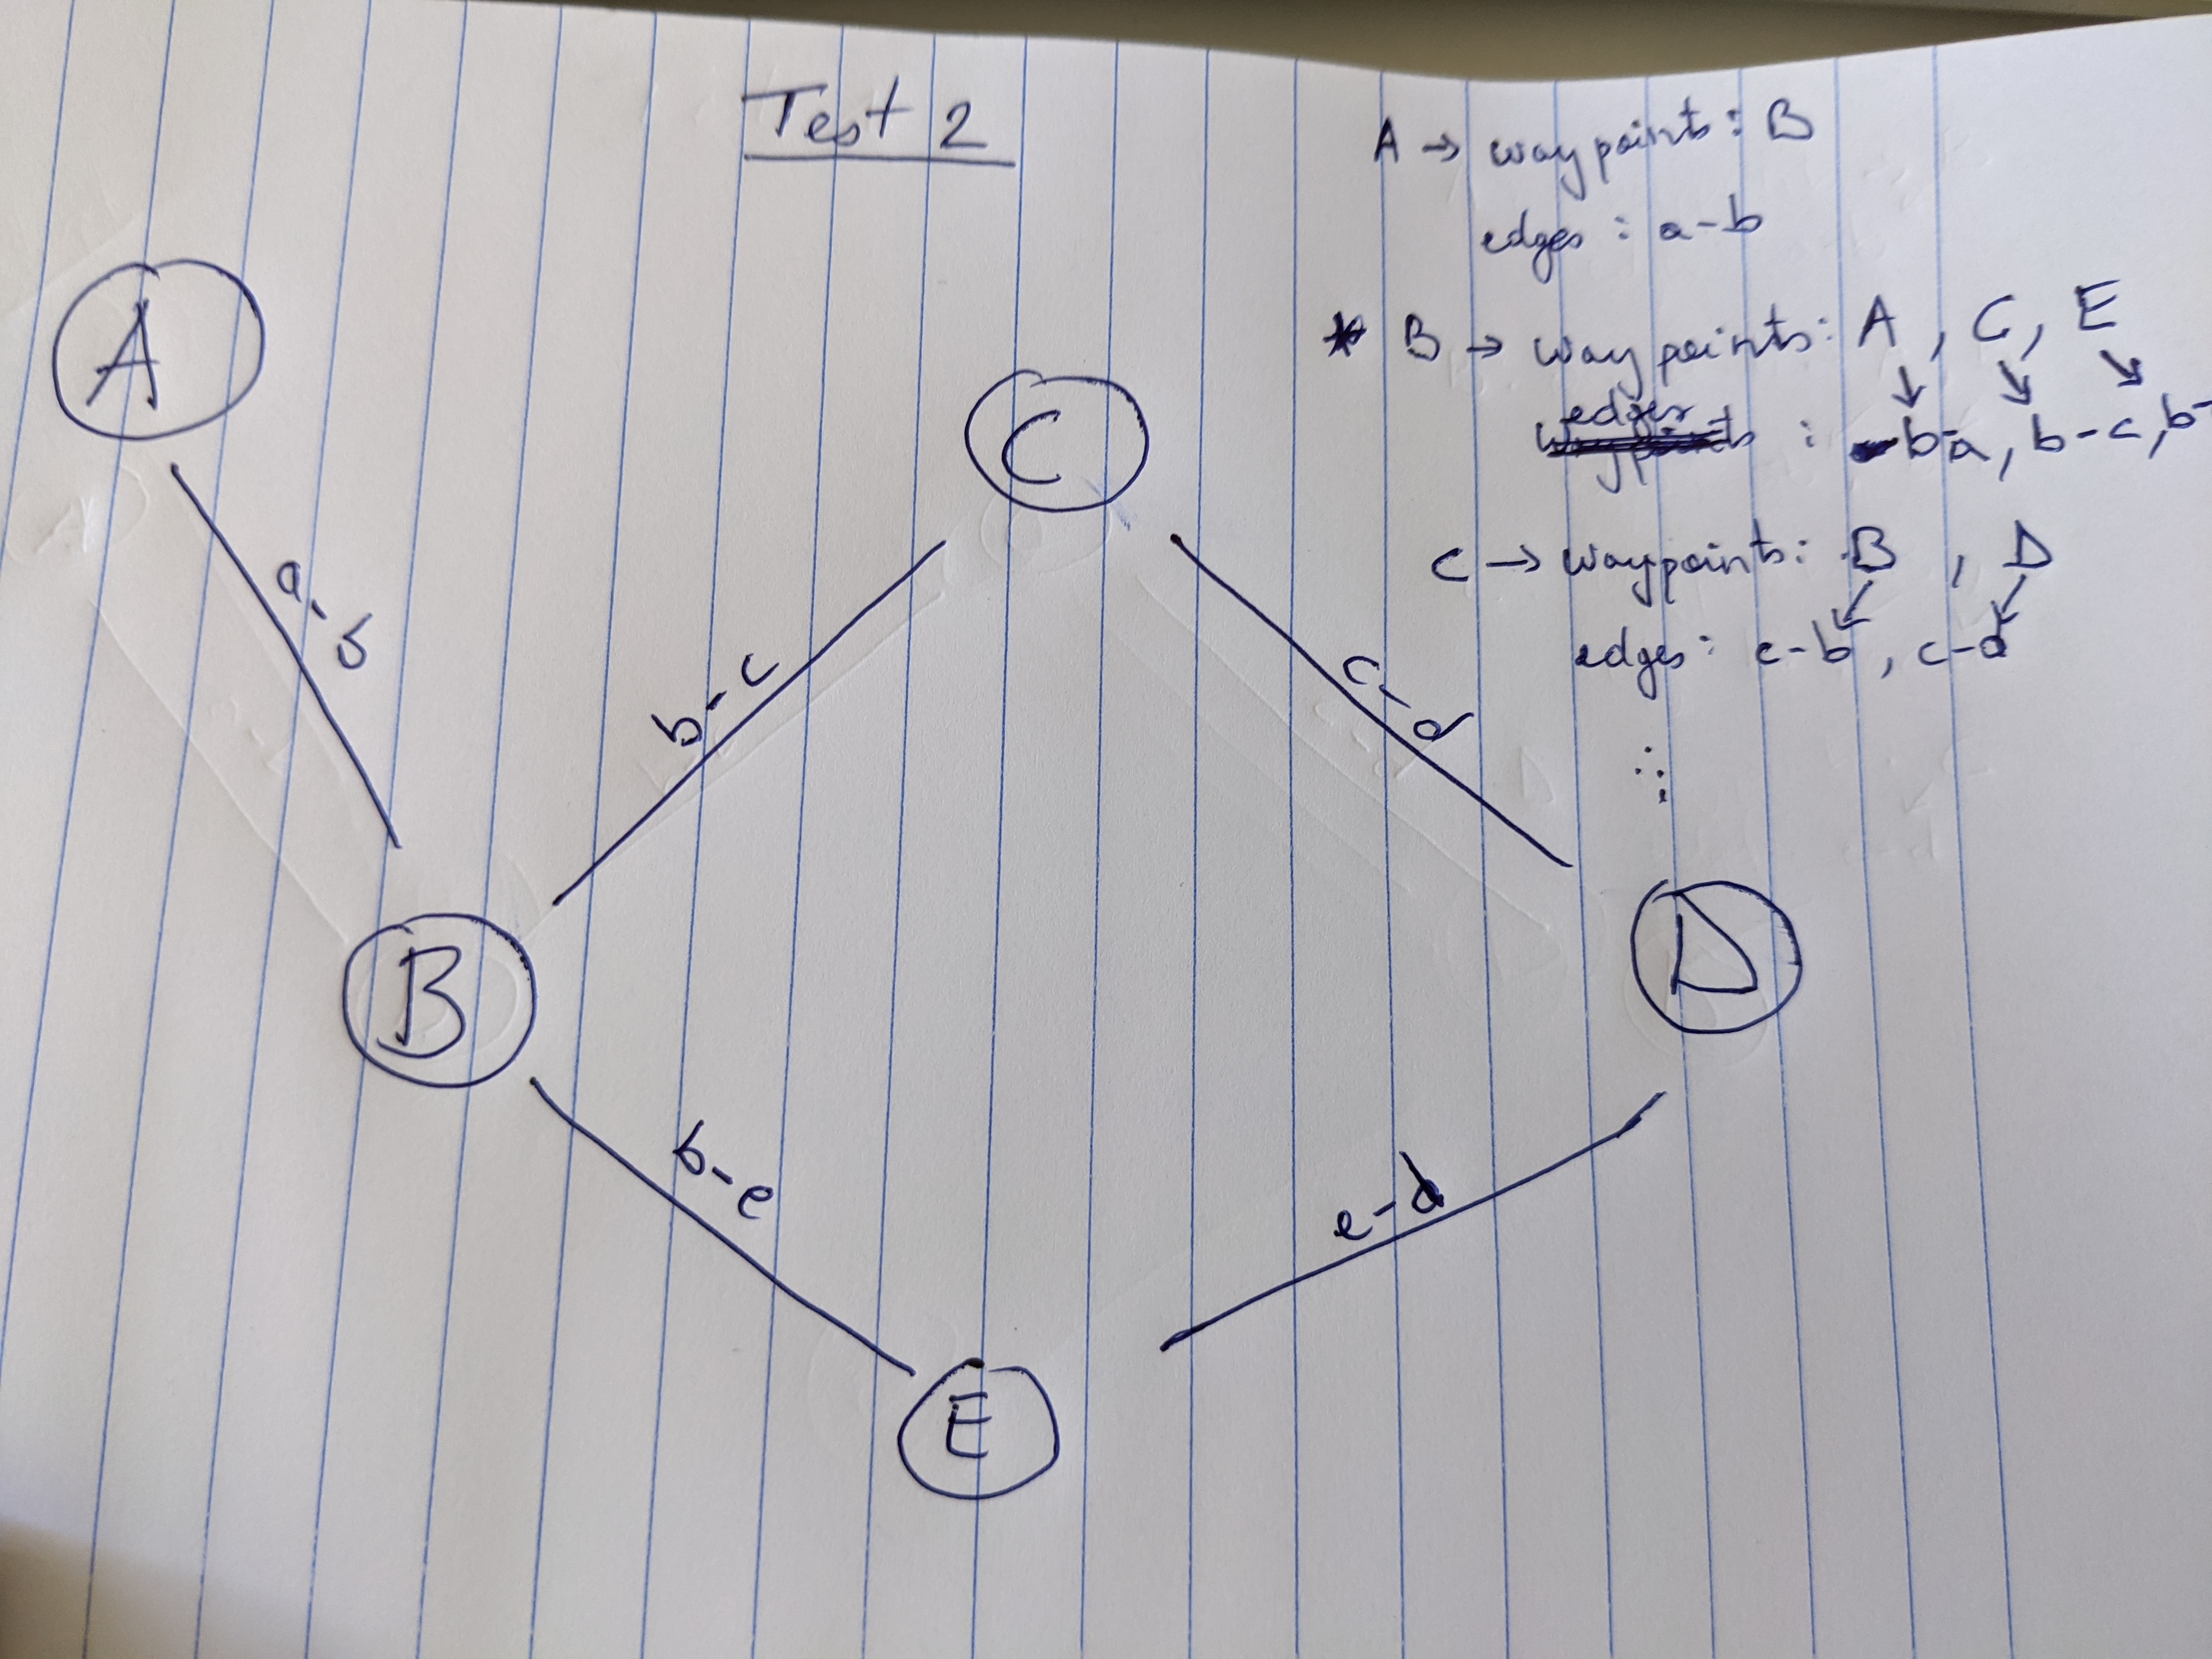 Test 2
A → waypoints: B
edges: a-b
* B → waypoints: A, C, E
edges
: b-a, b-c, b-
C → waypoints: B, D
edges: c-b, c-d
A
C
a-b
b-c
c-d
B
D
b-e
e-d
E